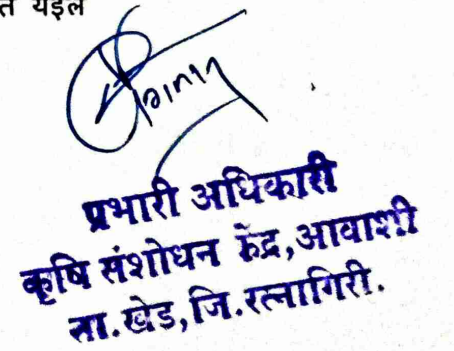 येईल
प्रभारी अधिकारी
कृषि संशोधन केंद्र,आवाशी
ता.खेड,जि.रत्नागिरी.